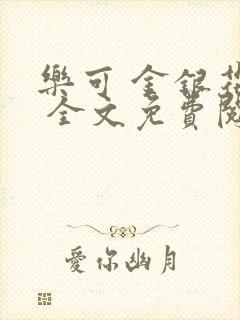 樂可 金銀花
全文免費閱
愛你幽月